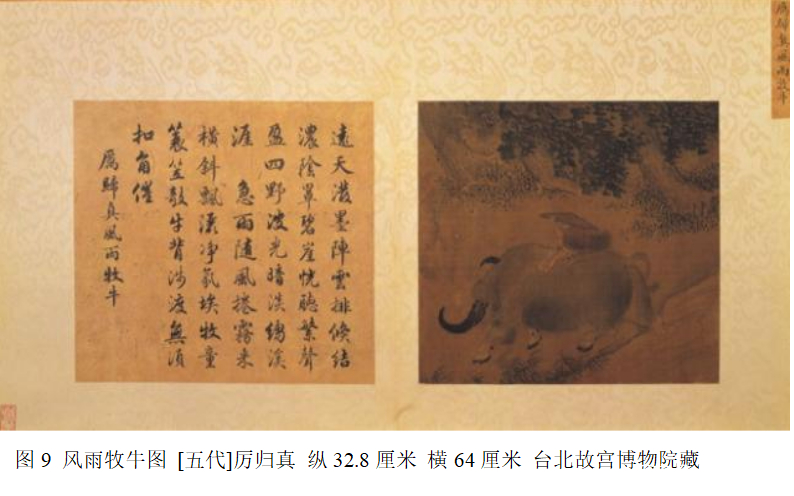 厲歸真風雨牧牛
遠天潑墨陣雲排倏結
濃陰罩碧崖恍聽繁聲
盈四野波光暗淡溪
涯 急雨隨風捲霧来
橫斜飄灑凈氛埃牧童
蓑笠敲牛背涉渡無須
扣角催
厲歸真風雨牧牛
图9 风雨牧牛图 [五代]厉归真 纵32.8厘米 横64厘米 台北故宫博物院藏